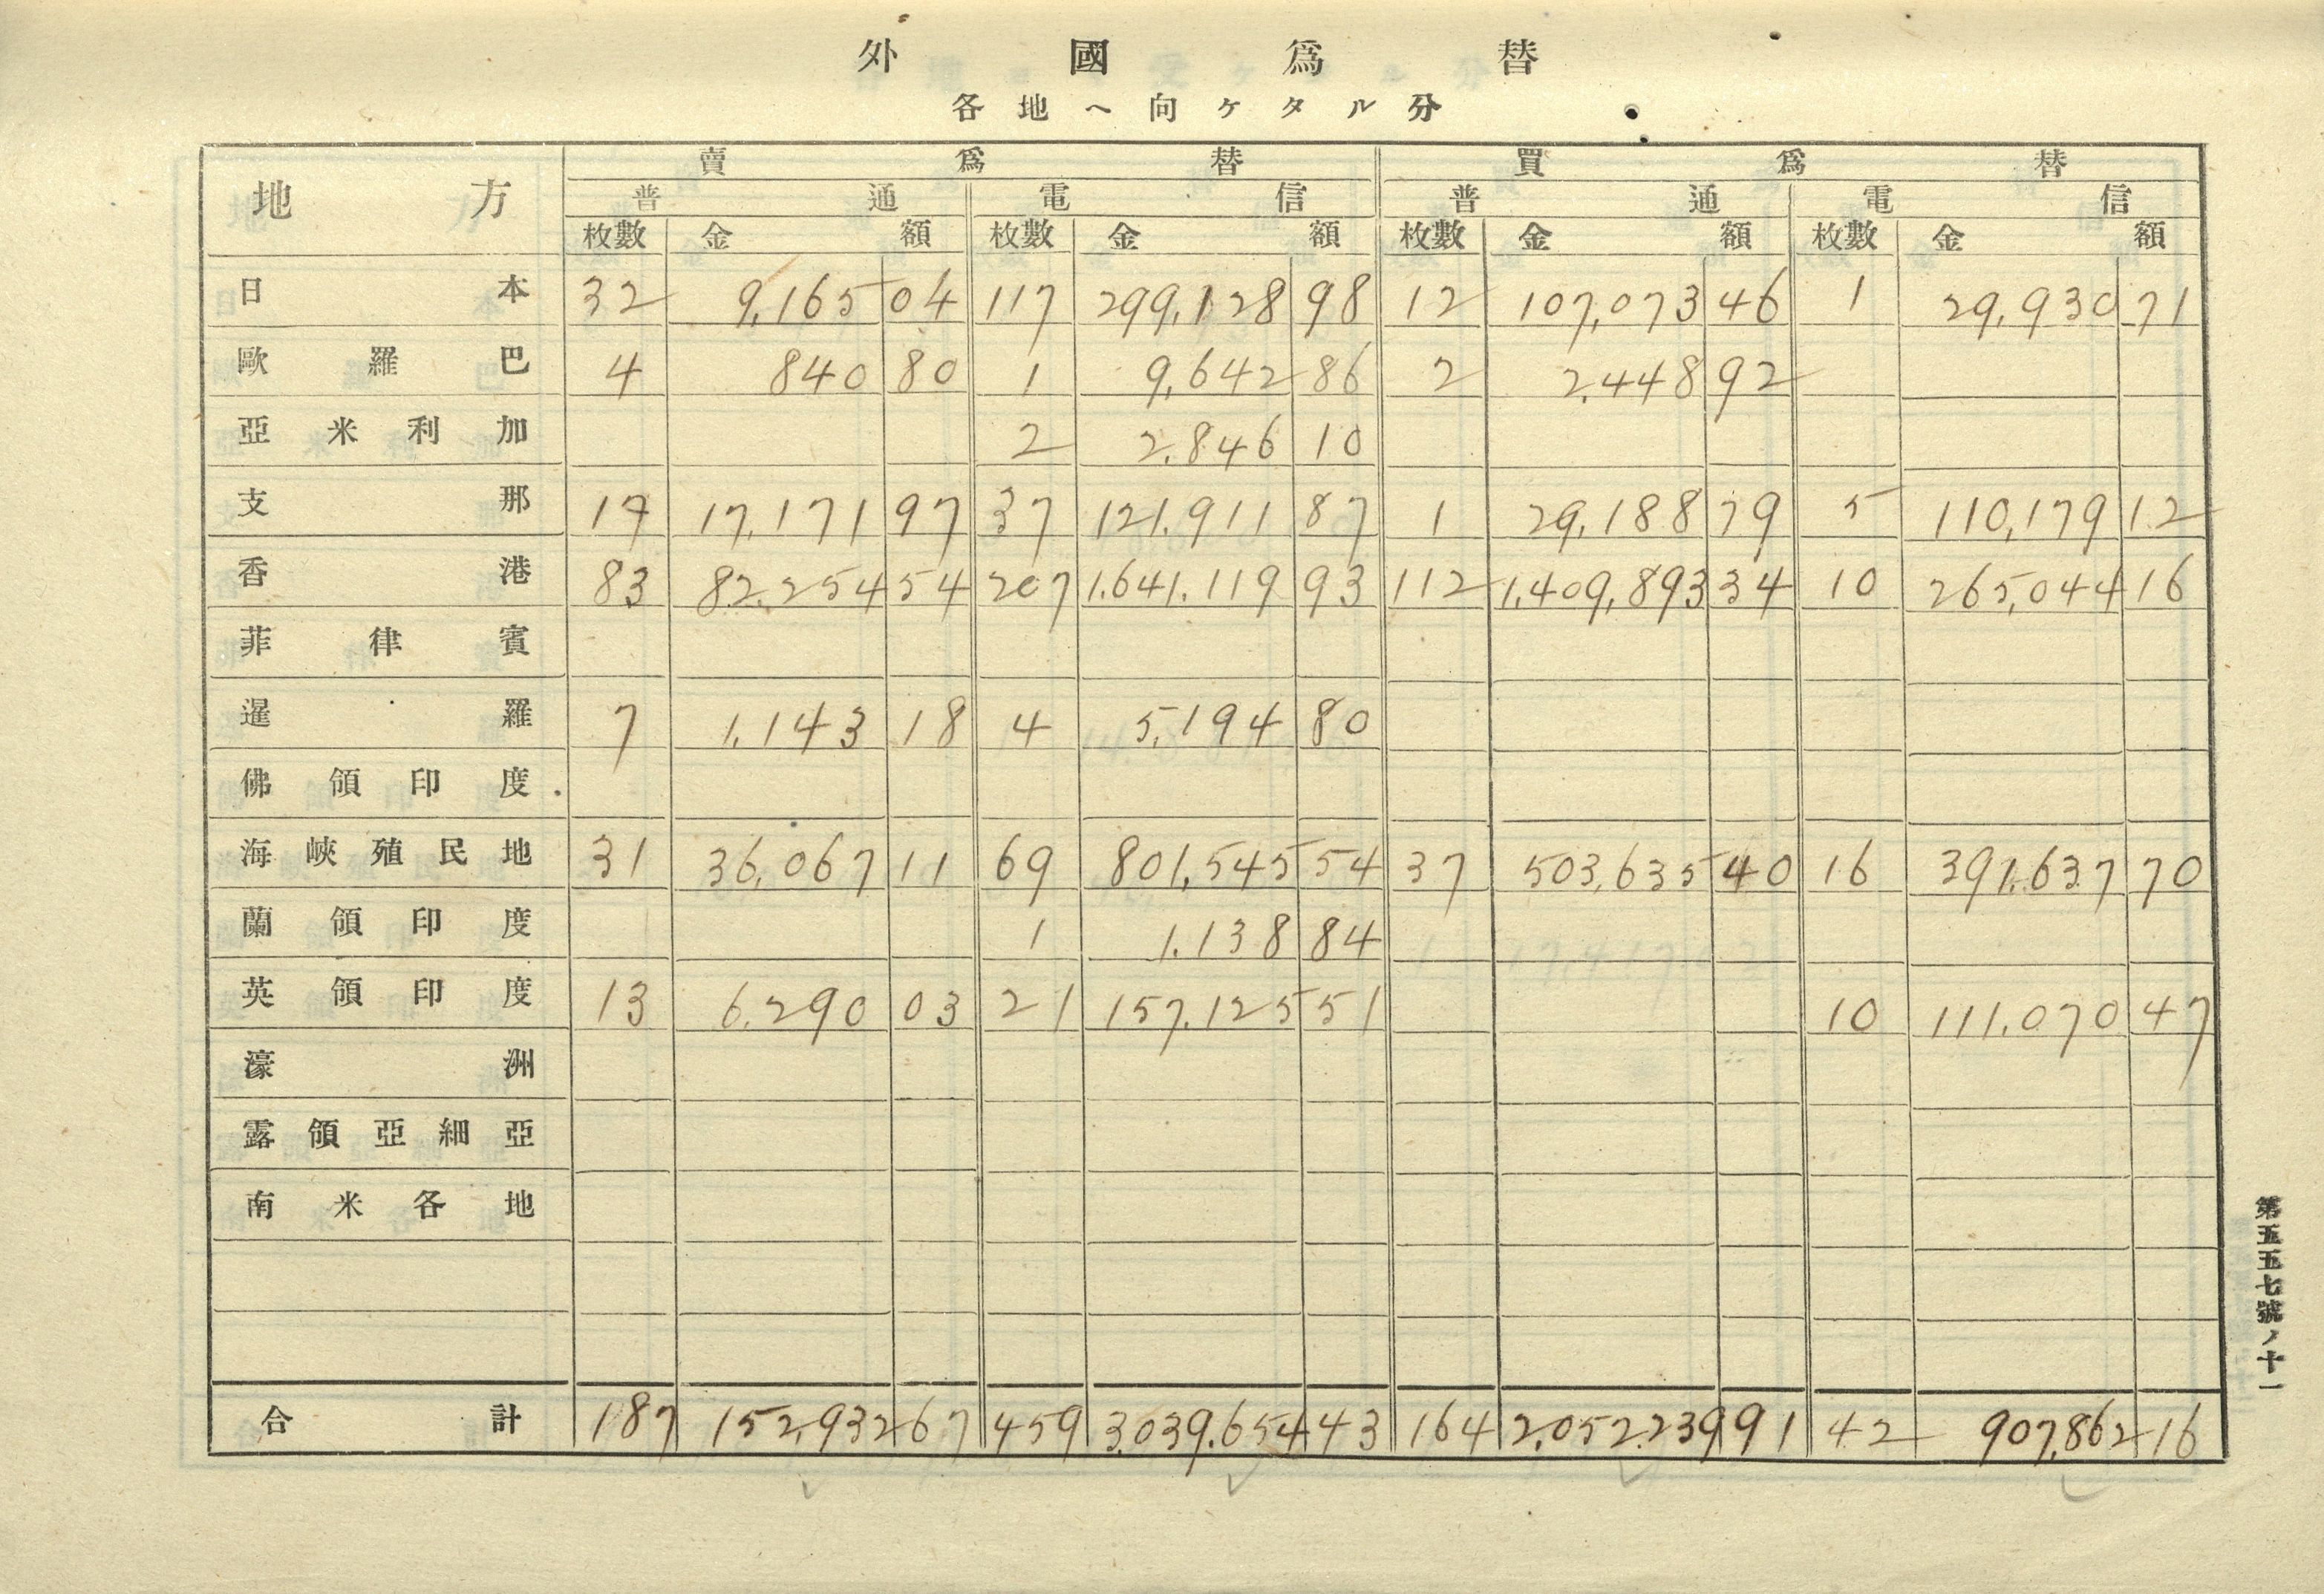 外國爲替
各地ヘ向ケタル分
地方 賣爲替 買爲替
普通 電信 普通 電信
枚數 金額 枚數 金額 枚數 金額 枚數 金額
日本 32 9,165 04 117 299,128 98 12 107,073 46 1 29,930 71
歐羅巴 4 840 80 1 9,642 86 2 2.448 92
亞米利加 2 2.846 10
支那 17 17,171 97 37 121.911 87 1 29,188 79 5 110,179 12
香港 83 82.254 54 207 1.641.119 93 112 1,409,893 34 10 265,044 16
菲律賓
暹羅 7 1.143 18 4 5,194 80
佛領印度
海峽殖民地 31 36,067 11 69 801,545 54 37 503,635 40 16 391,637 70
蘭領印度 1 1.138 84
英領印度 13 6.290 03 21 157.125 51 10 111.070 47
濠洲
露領亞細亞
南米各地
合計 187 152,932 67 459 3.039.654 43 164 2,052.239 91 42 907,862 16
第五五七號ノ十一